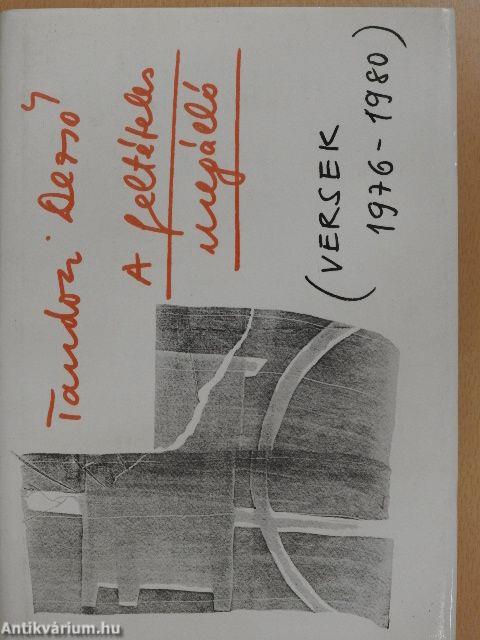 Tandori Dezső
A feltételes
megálló
(VERSEK
1976-1980)
Antikvárium.hu